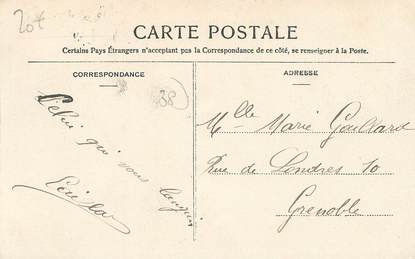 20f
CARTE POSTALE
Certains Pays Étrangers n'acceptant pas la Correspondance de ce côté, se renseigner à la Poste.
CORRESPONDANCE
38
Celui qui vous
ADRESSE
Mlle Marie Gaillard
Rue de Londres 10
Grenoble